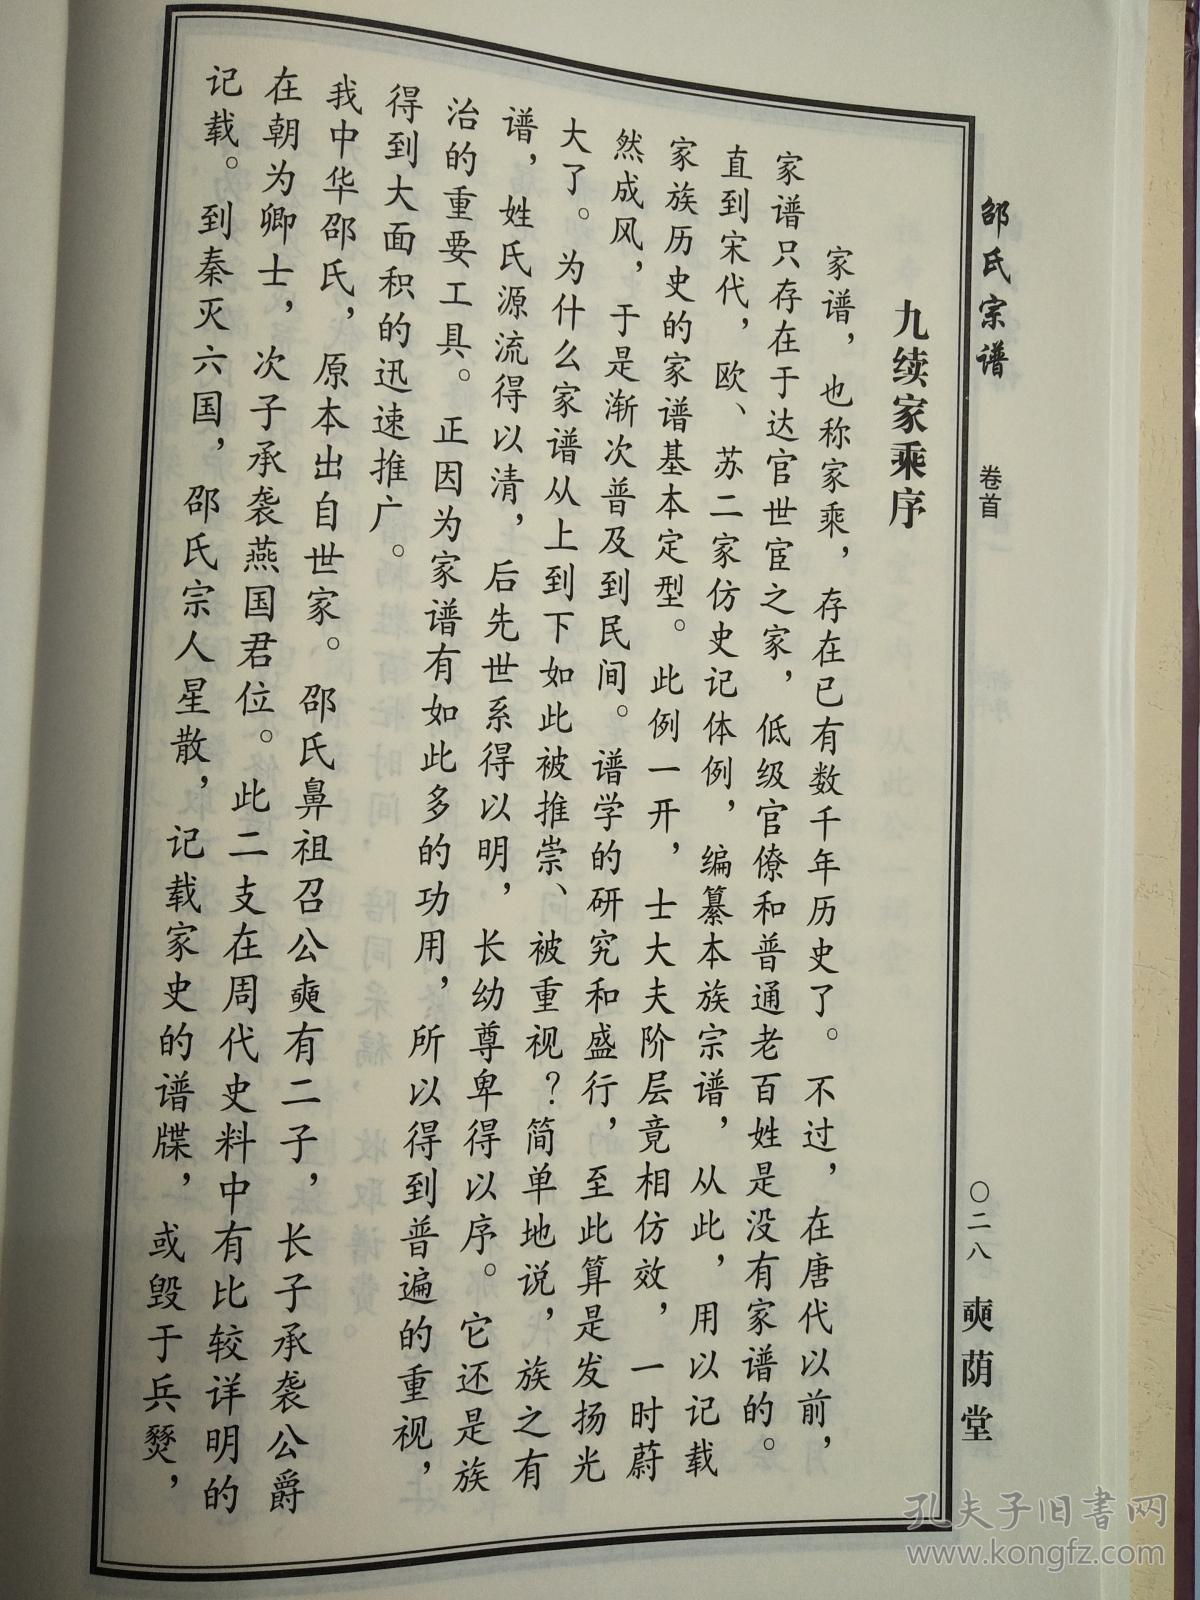 邵氏宗谱 卷首 〇二八 奭荫堂
九续家乘序
家谱，也称家乘，存在已有数千年历史了。不过，在唐代以前，
家谱只存在于达官世宦之家，低级官僚和普通老百姓是没有家谱的。
直到宋代，欧、苏二家仿史记体例，编纂本族宗谱，从此，用以记载
家族历史的家谱基本定型。此例一开，士大夫阶层竟相仿效，一时蔚
然成风，于是渐次普及到民间。谱学的研究和盛行，至此算是发扬光
大了。为什么家谱从上到下如此被推崇、被重视？简单地说，族之有
谱，姓氏源流得以清，后先世系得以明，长幼尊卑得以序。它还是族
治的重要工具。正因为家谱有如此多的功用，所以得到普遍的重视，
得到大面积的迅速推广。
我中华邵氏，原本出自世家。邵氏鼻祖召公奭有二子，长子承袭公爵
在朝为卿士，次子承袭燕国君位。此二支在周代史料中有比较详明的
记载。到秦灭六国，邵氏宗人星散，记载家史的谱牒，或毁于兵燹，
孔夫子旧书网
www.kongfz.com